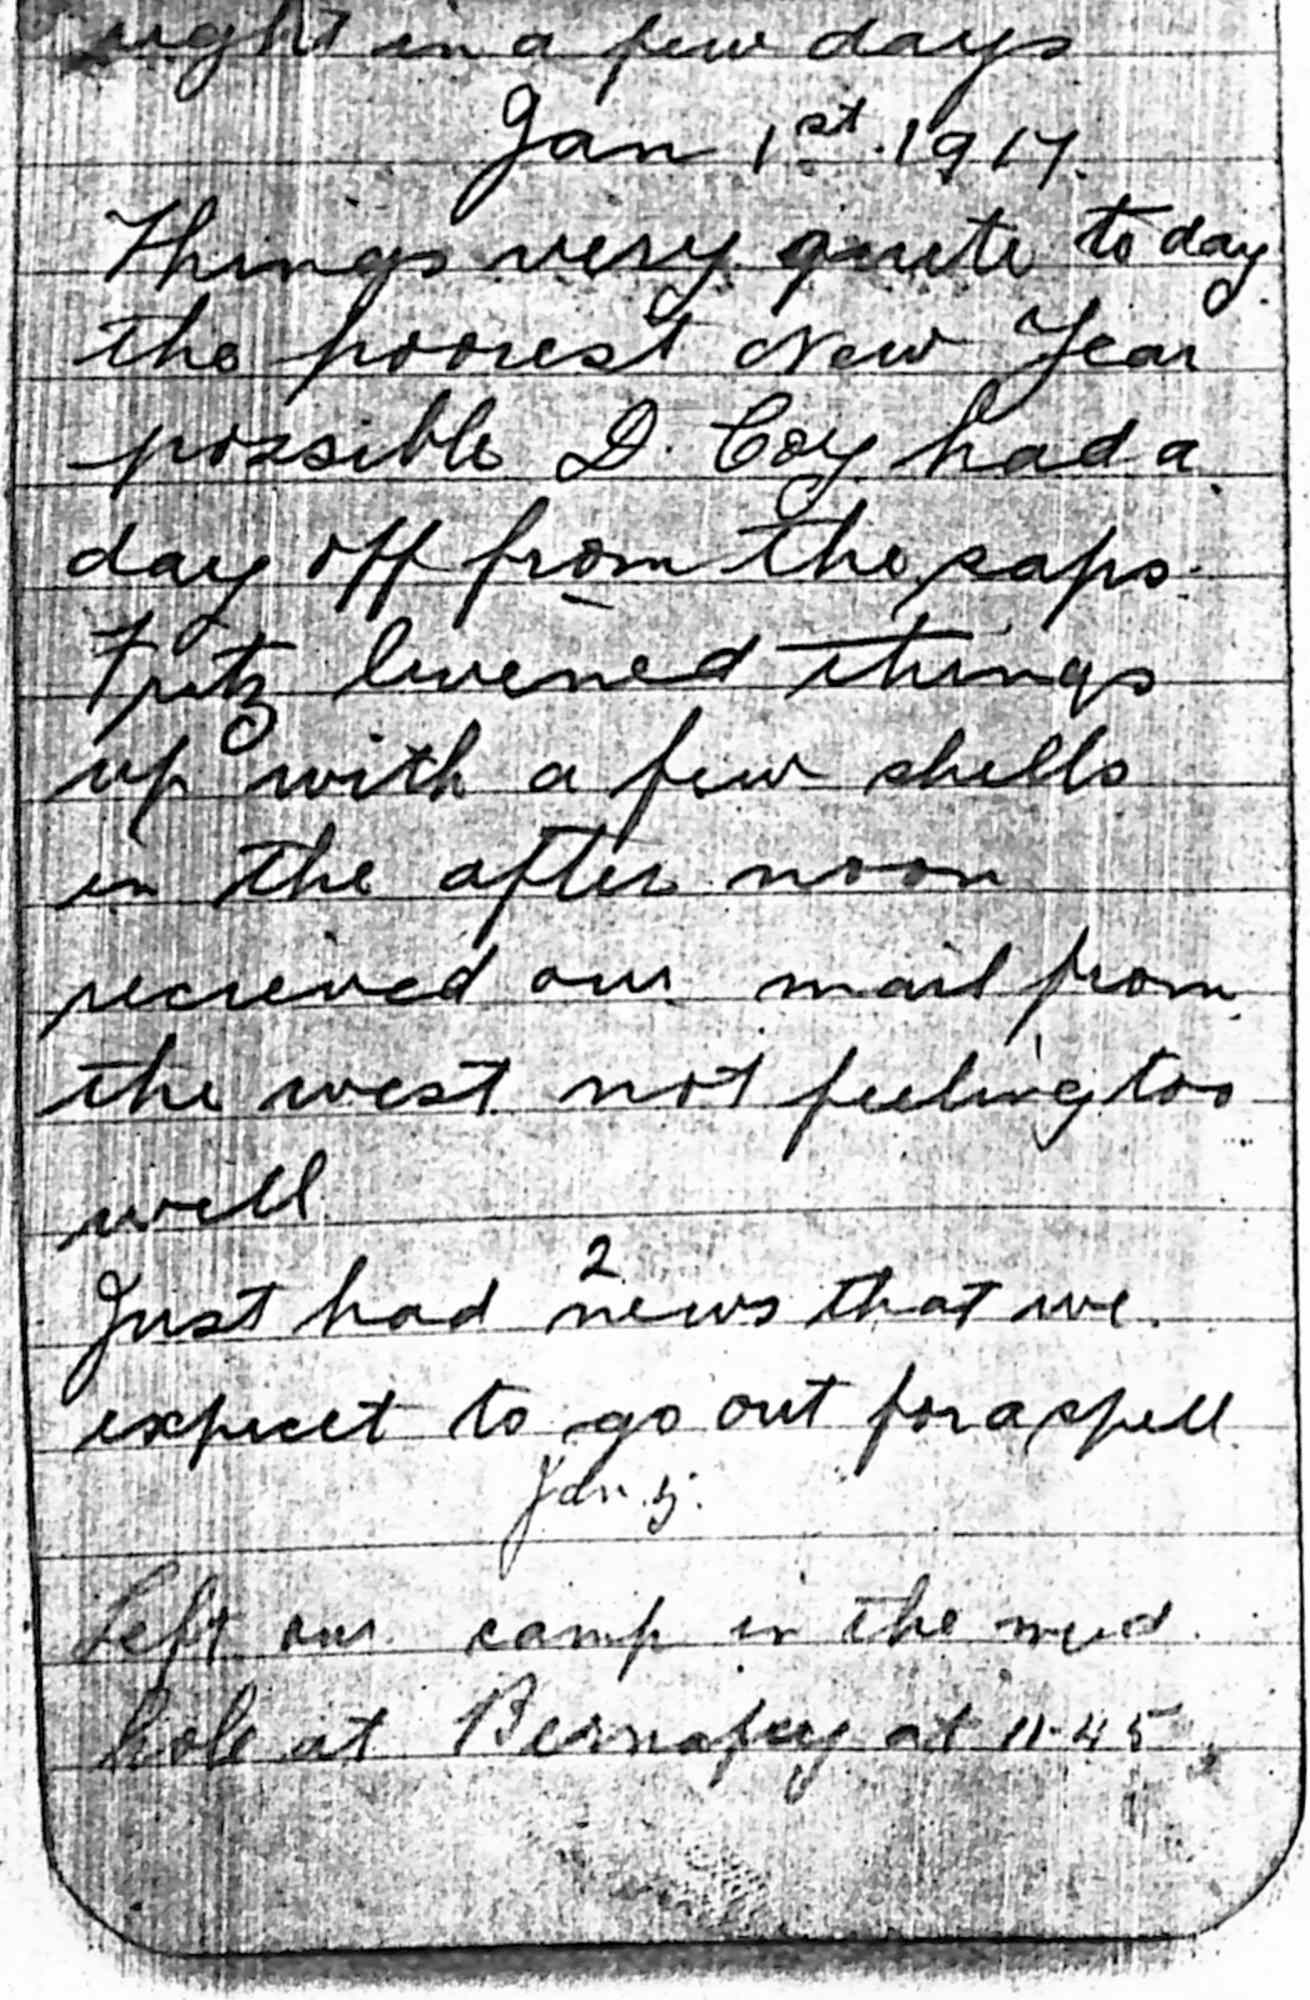 right in a few days
Jan 1st. 1917.
Things very quite to day
the poorest New Year
possible D. Coy had a
day off from the saps.
Fritz livened things
up with a few shells
in the after noon
recieved our mail from
the west not feeling too
well
2
Just had news that we
expect to go out for a spell
Jan. 5.
Left our camp in the mud
hole at Bernafay at 11-45